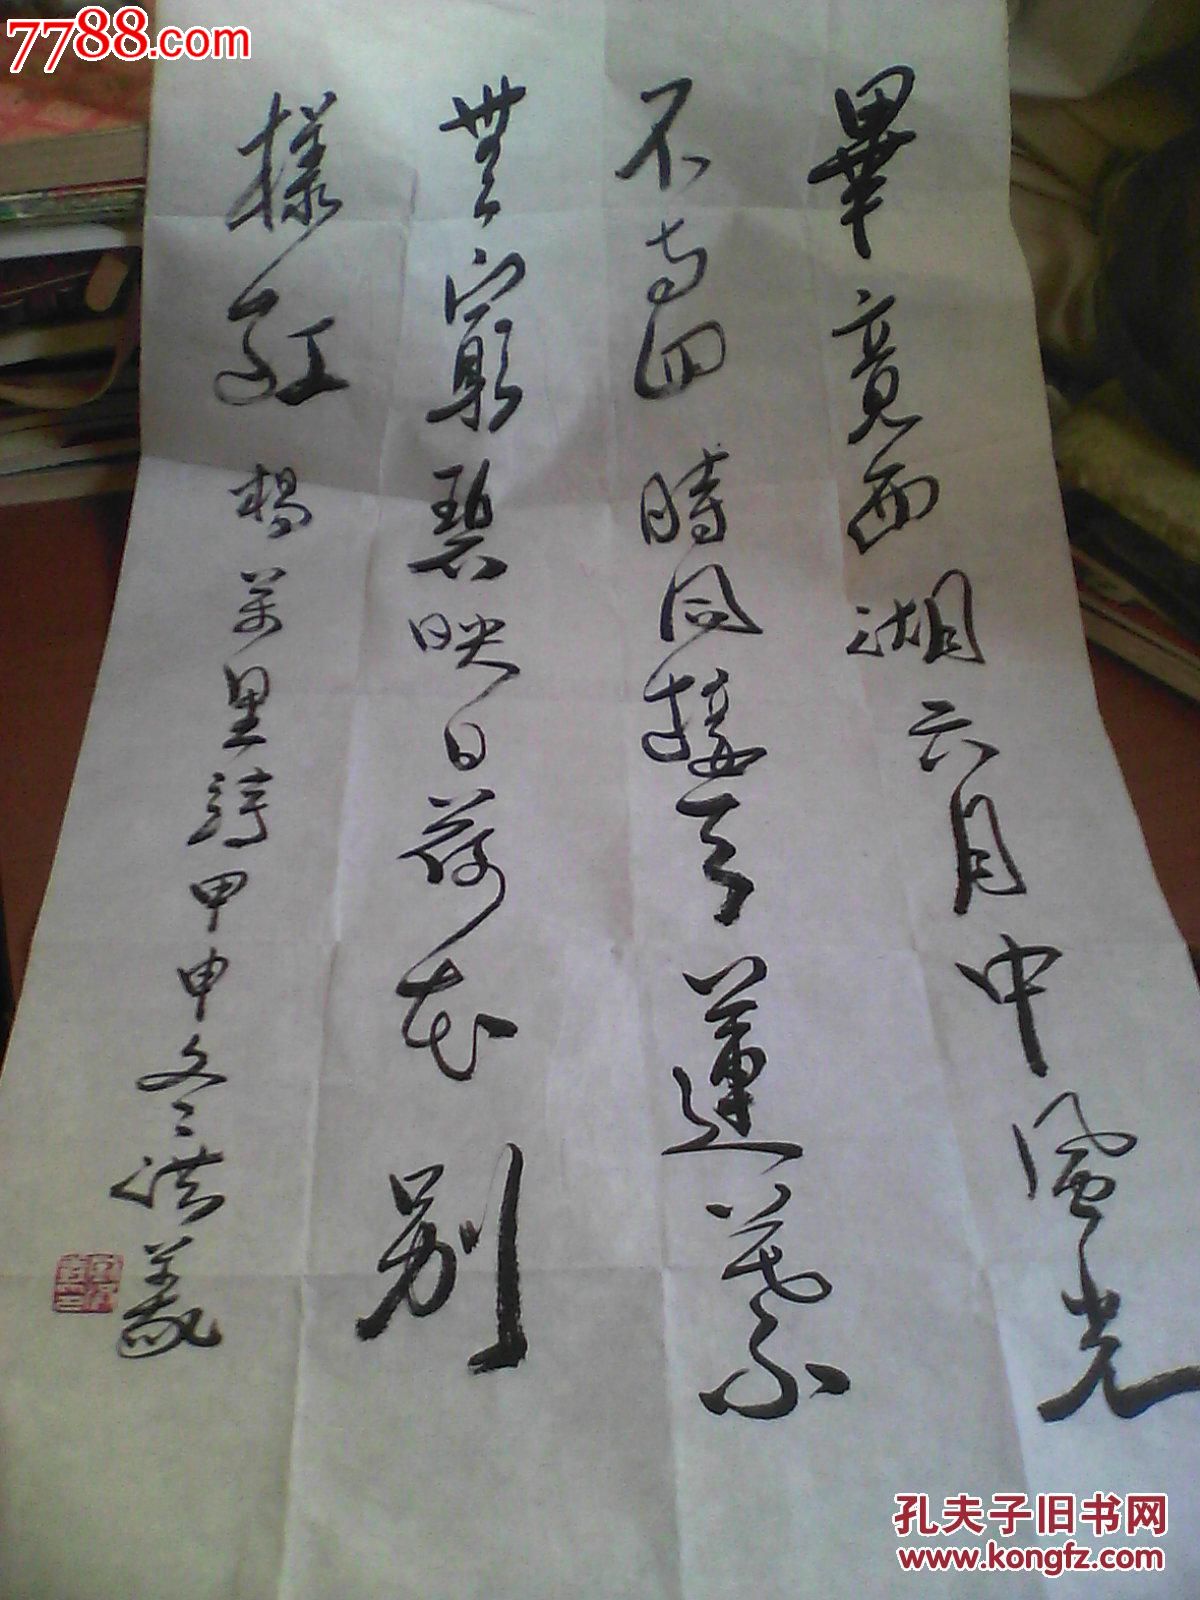 7788.com
畢竟西湖六月中風光
不与四時同接天蓮葉
無窮碧映日荷花別
樣紅
楊萬里詩甲申冬洪義
孔夫子旧书网
www.kongfz.com